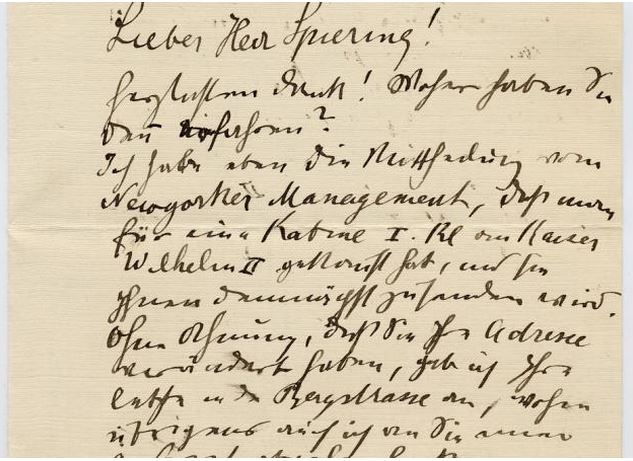 Lieber Herr Spiering!
Herzlichsten Dank! Woher haben Sie
denn erfahren?
Ich habe eben die Mittheilung vom
Newyorker Management, daß man
für eine Kabine I. Kl am Kaiser
Wilhelm II gesorgt hat, und sie
Ihnen demnächst zusenden wird.
Ohne Ahnung, daß Sie Ihre Adresse
verändert haben, gab ich Ihre
letzte in der Bergstrasse an, wohin
übrigens auch ich an Sie einen